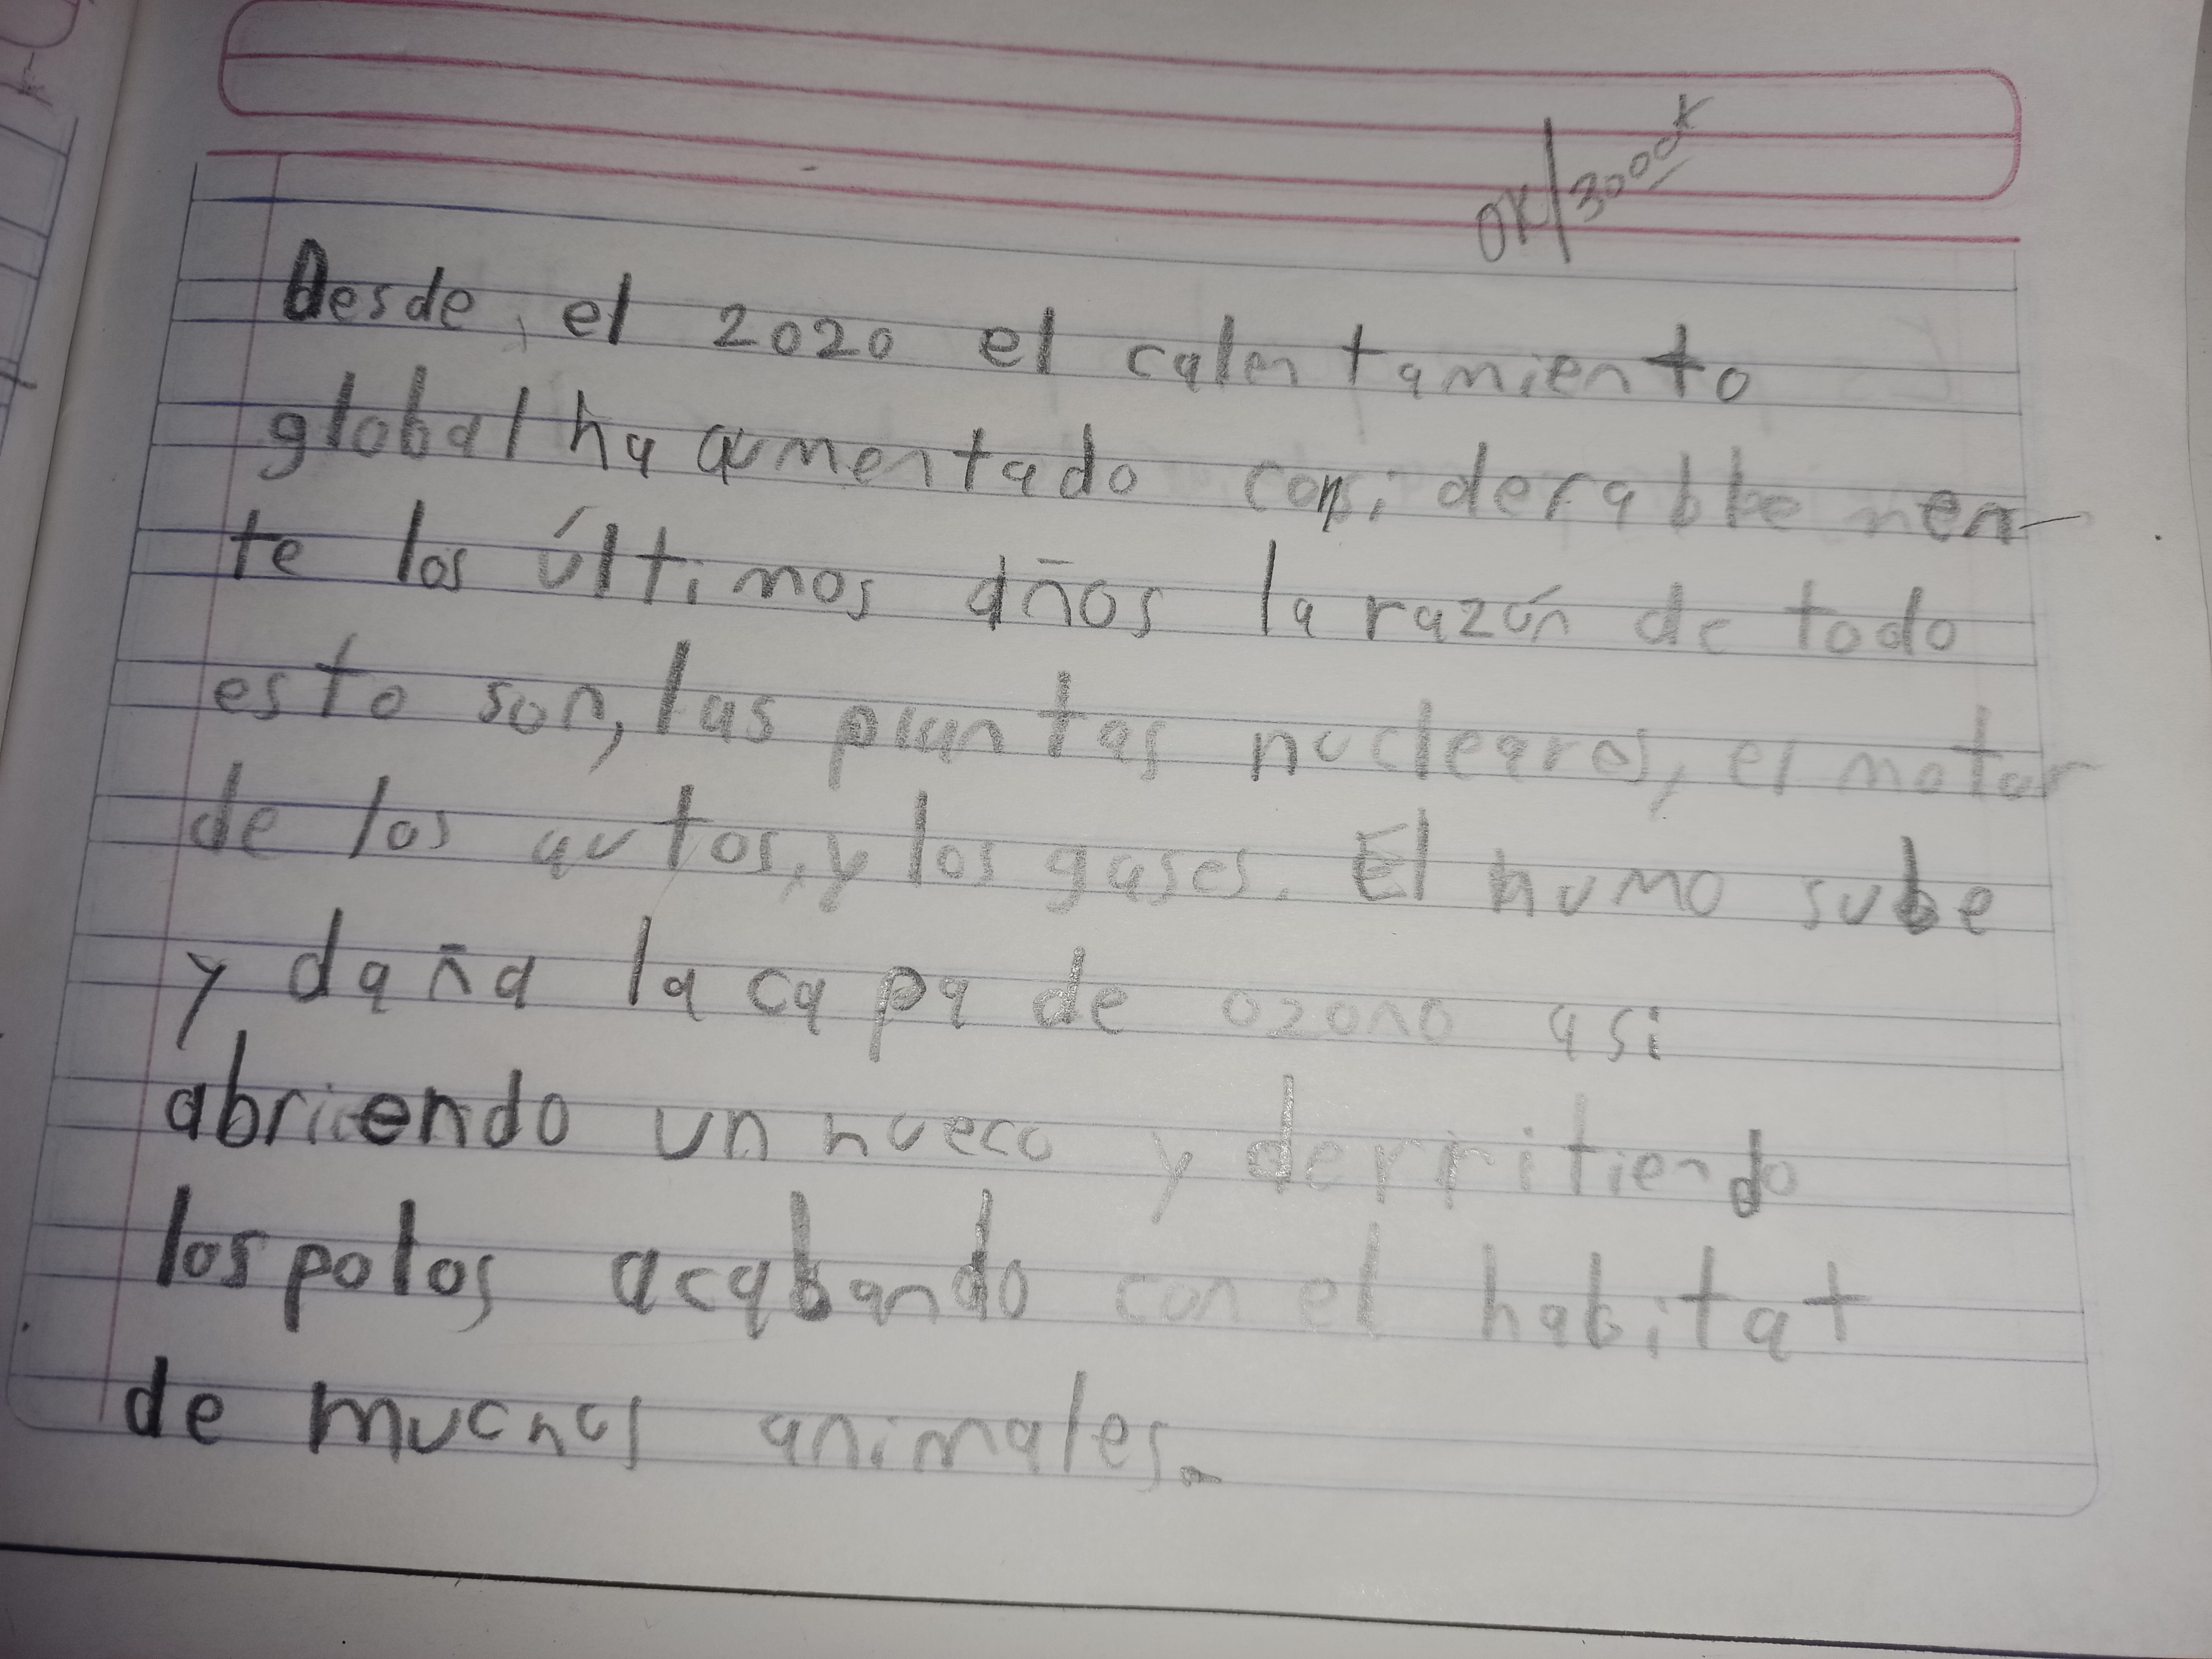 Desde, el 2020 el calentamiento
global ha aumentado considerablemen-
te los últimos años la razón de todo
esto son, las plantas nucleares, el motor
de los autos, y los gases. El humo sube
y daña la capa de ozono asi
abriendo un hueco y derritiendo
los polos acabando con el habitat
de muchos animales.